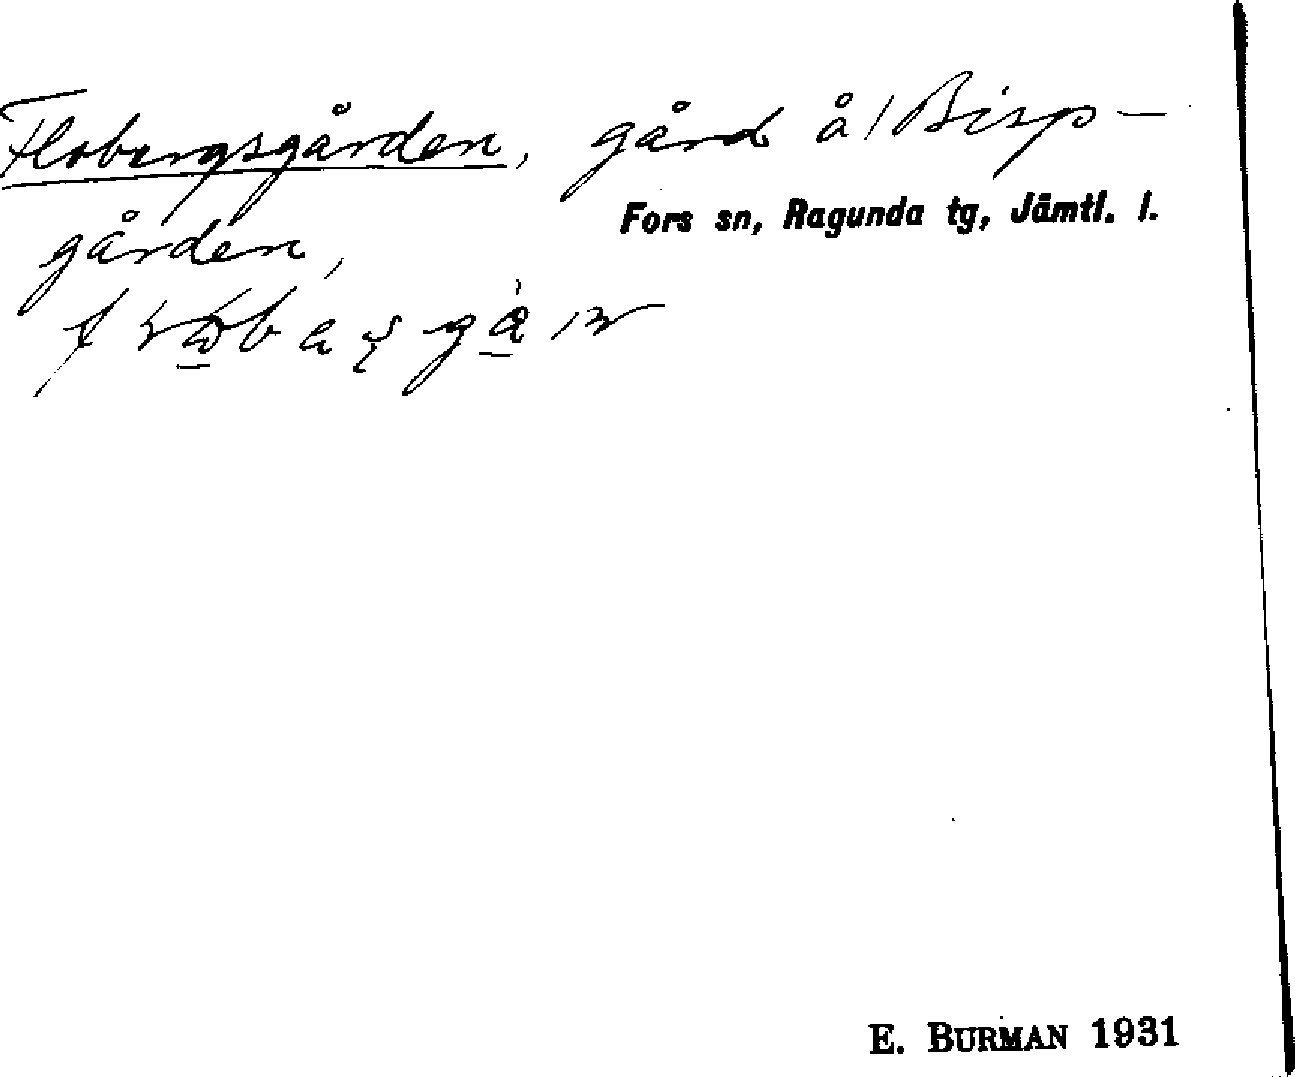 Flobergsgården, gård å / Bisp-
Fors sn, Ragunda tg, Jämtl. l.
gården,
E. BURMAN 1931